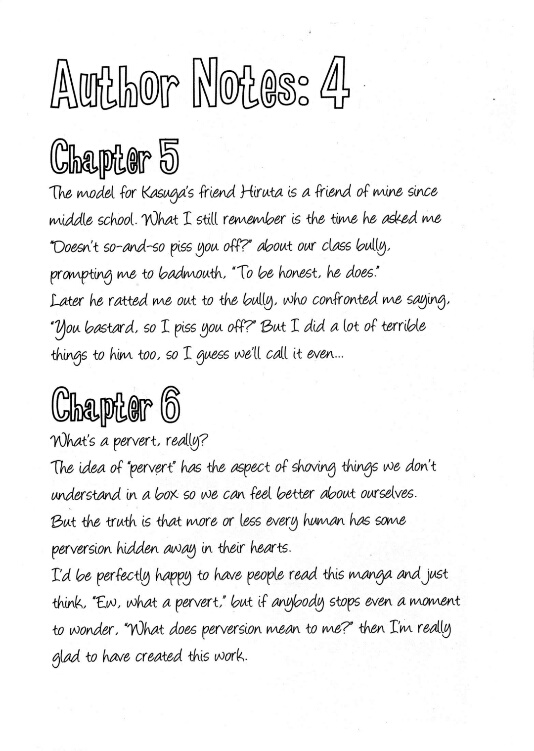 Author Notes: 4
Chapter 5
The model for Kasuga's friend Hiruta is a friend of mine since
middle school. What I still remember is the time he asked me
"Doesn't so-and-so piss you off?" about our class bully,
prompting me to badmouth, "To be honest, he does."
Later he ratted me out to the bully, who confronted me saying,
"You bastard, so I piss you off?" But I did a lot of terrible
things to him too, so I guess we'll call it even...
Chapter 6
What's a pervert, really?
The idea of "pervert" has the aspect of shoving things we don't
understand in a box so we can feel better about ourselves.
But the truth is that more or less every human has some
perversion hidden away in their hearts.
I'd be perfectly happy to have people read this manga and just
think, "Ew, what a pervert," but if anybody stops even a moment
to wonder, "What does perversion mean to me?" then I'm really
glad to have created this work.